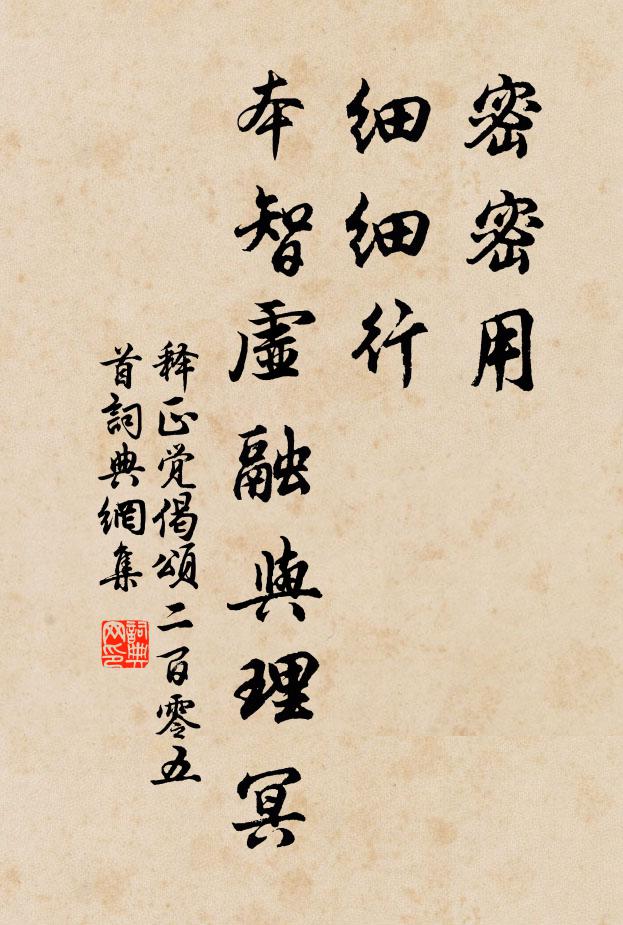 密密用
细细行
本智虚融與理冥
释正覺偈頌二百零五
首詞典網集
詞典
网印